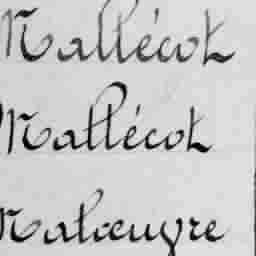 Mallécot
Mallécot
Malœuvre